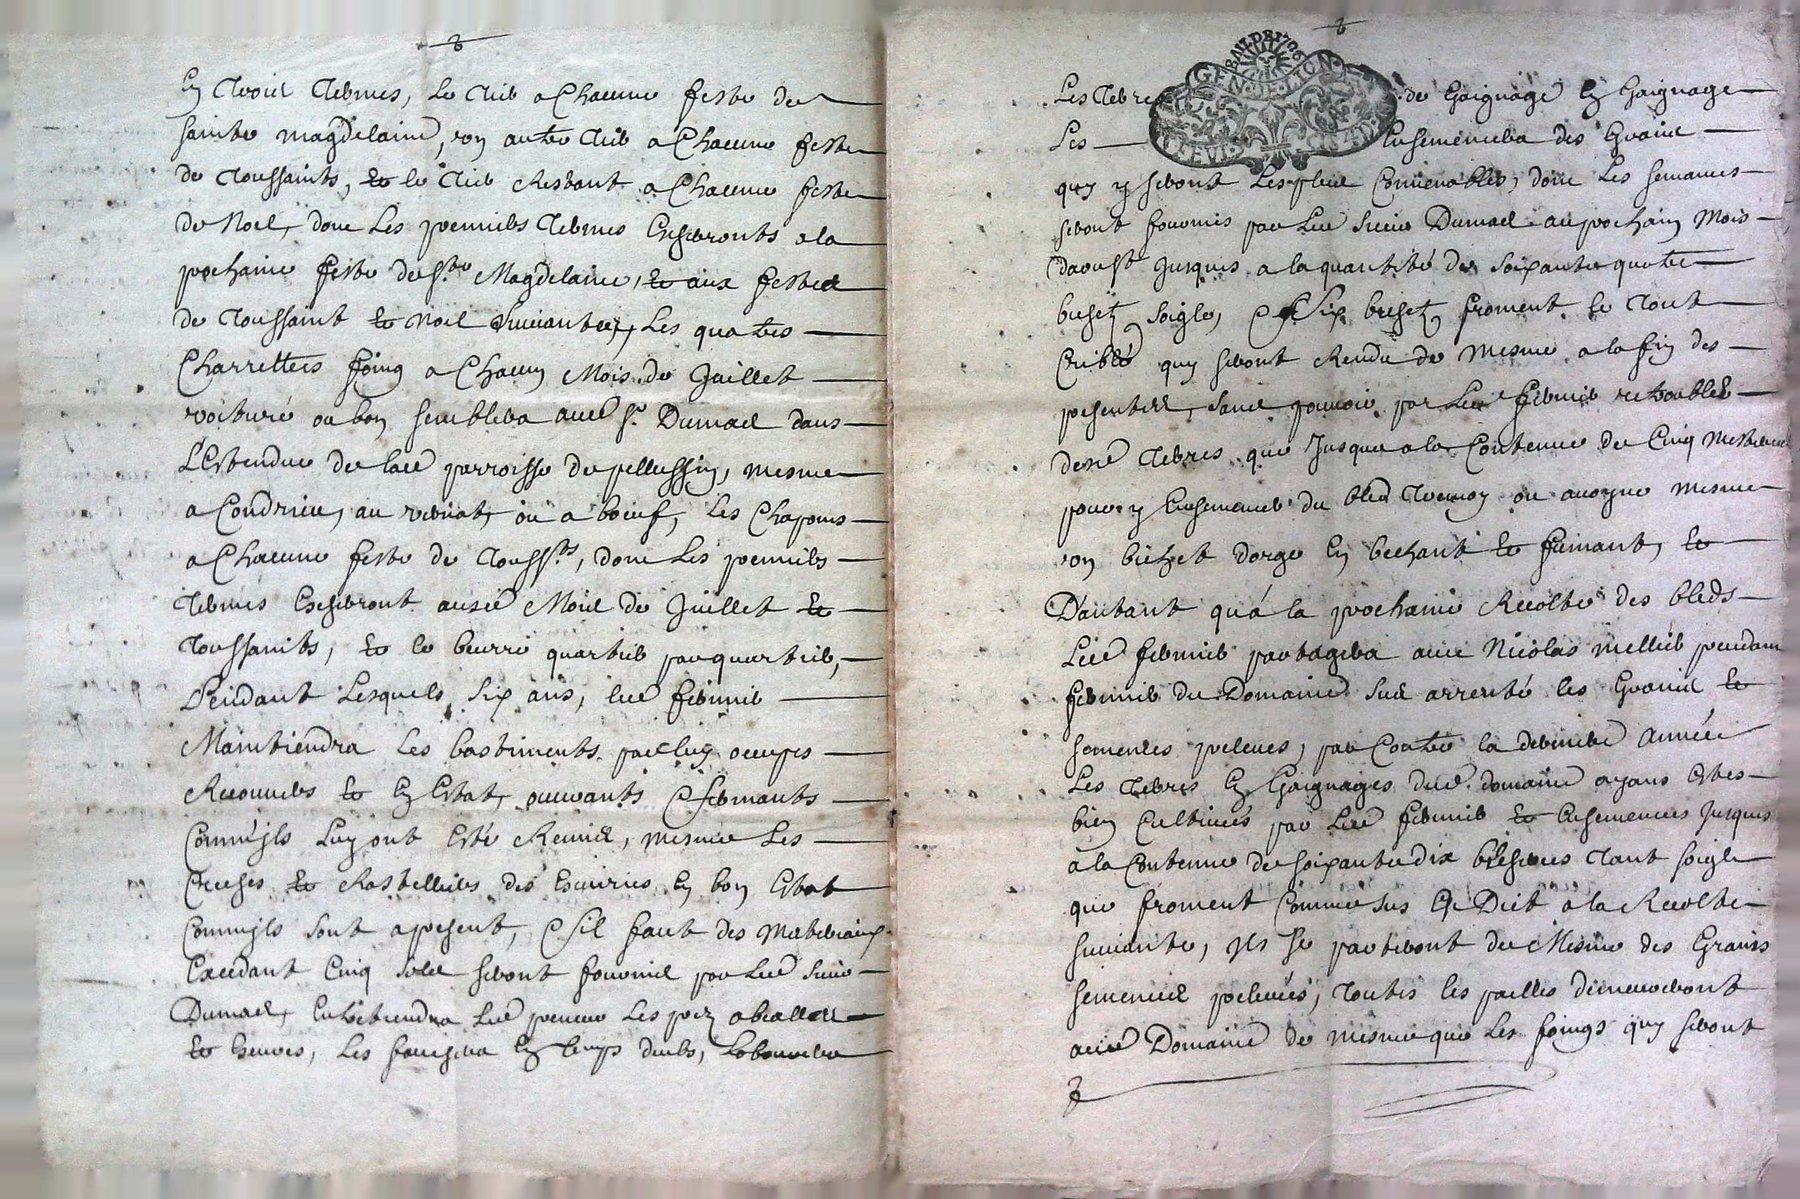 En trois termes, le tier a chacune feste de
sainte magdelaine, un autre tier a chacune feste
de toussaints, et le tier restant a chacune feste
de Noel, dont les premiers termes escherronts a la
prochaine feste de Ste Magdelaine, et aux festes
de toussaint et noel suivantes, Les quatres
Charrettees foing a chacun Mois de Juillet
voituré ou bon semblera audt Sr Dumas dans
L'estendue de lade parroisse de pellussin, mesme
a Condrieu, au vernat, ou a boeuf, Les Chapons
a Chacune feste de Toussts, dont Les premiers
termes escherront ausdt Mois de Juillet et
toussaints, et le beurre quartier par quartier,
Pendant Lesquels six ans, led fermier
Maintiendra les bastiments par luy occupes
Recouverts et en Estat, ouvrants & fermants
Comm'jls Luy ont esté Remis, mesme Les
Creches et Rastelliers des Escuries en bon estat
Comm'jls sont apresent, & s'il faut des materiaux
Excedant Cinq sols seront fournis par Led Sieur
Dumas, Entretiendra Led preneur Les prez
et les fauchera en temps deubs,
8
BAIL DE 1726
GEN DE LION
Les Terre de Gaignage En Gaignage
Les Ensemencera des Grains
quy y seront Les plus Convenables, dont Les semances
seront fournies par Led Sieur Dumas au prochain Mois
d'aoust Jusques a la quantité de soixante quatre
bichetz soigle, & six bichetz froment le tout
Criblé quy seront Rendu de mesme a la fin des
presentes, sans pouvoir par Led fermier retroubler
desd terres que Jusque a la Contenue de Cinq
pour y Ensemencer du bled ou avoyne mesme
un bichet d'orge En bechant et fumant, et
D'autant qu'a la prochaine Recolte des bleds
Led fermier partagera avec Nicolas mellier
fermier du Domaine sus arrenté les Grains et
semences prelevés, par Contre la derniere année
Les terres En Gaignages dud domaine ayans estes
bien Cultivées par Led fermier et Ensemencées Jusques
a la Contenue de soixante dix tant soigle
que froment Comme sus est Dit a la Recolte
suivante, jls se partiront de Mesme des Grains
semences prelevés, toutes les pailles demeureront
aud Domaine de mesme que Les foings quy seront